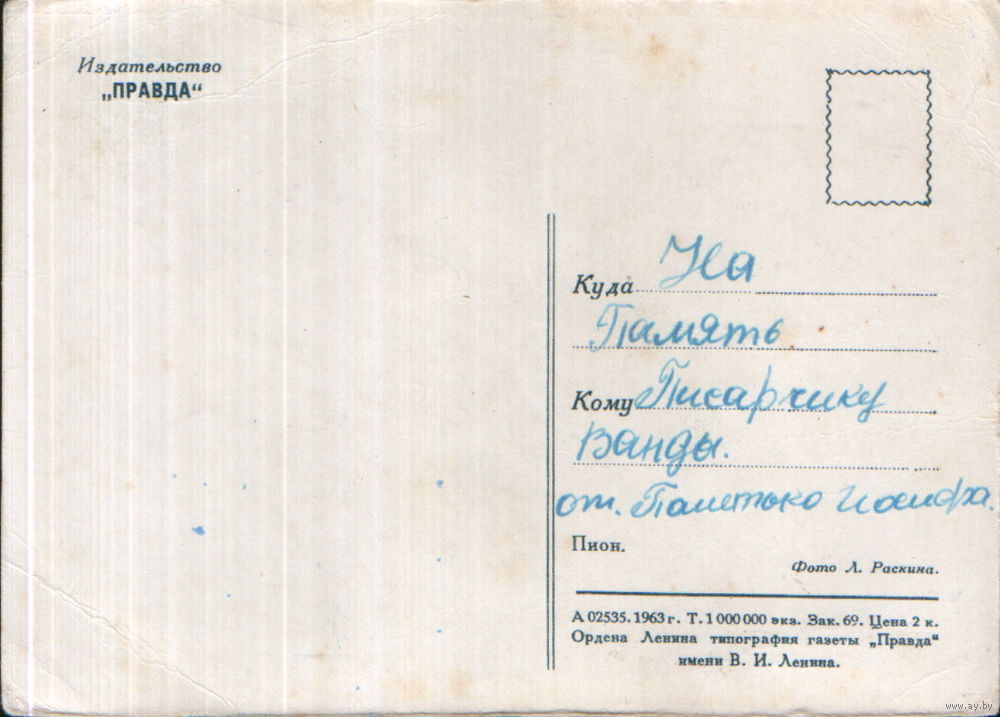 Издательство
„ПРАВДА“
Куда На
Память
Кому Писарчику
Ванды.
от. Палетько Иосифа.
Пион.
Фото Л. Раскина.
А 02535. 1963 г. Т. 1 000 000 экз. Зак. 69. Цена 2 к.
Ордена Ленина типография газеты „Правда“
имени В. И. Ленина.
www.ay.by